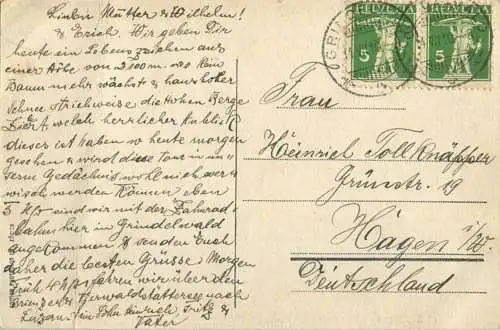 Lieben Mütter & Wilhelm!
& Erich. Wir geben Dir
heute ein Lebenszeichen aus
einer Höhe von 2100 m. wo kein
Baum mehr wächst & haushoher
Schnee strichweise die hohen Berge
ziert, welch herrlicher Anblick
dieses ist haben wir heute morgen
gesehen & wird diese Tour in un
serm Gedächtnis wohl nich ver
wischt werden können eben
5 Uhr sind wir mit der Zahnrad
bahn hier in Grindelwald
angekommen & senden Euch
daher die besten Grüsse. Morgen
früh fahren wir über den
Brienzer & Vierwaldstättersee nach
Luzern. Heinrich, Fritz &
Vater
HELVETIA
5
HELVETIA
5
Frau
Heinrich Tollknäpper
Grünstr. 19
Hagen i/W.
Deutschland